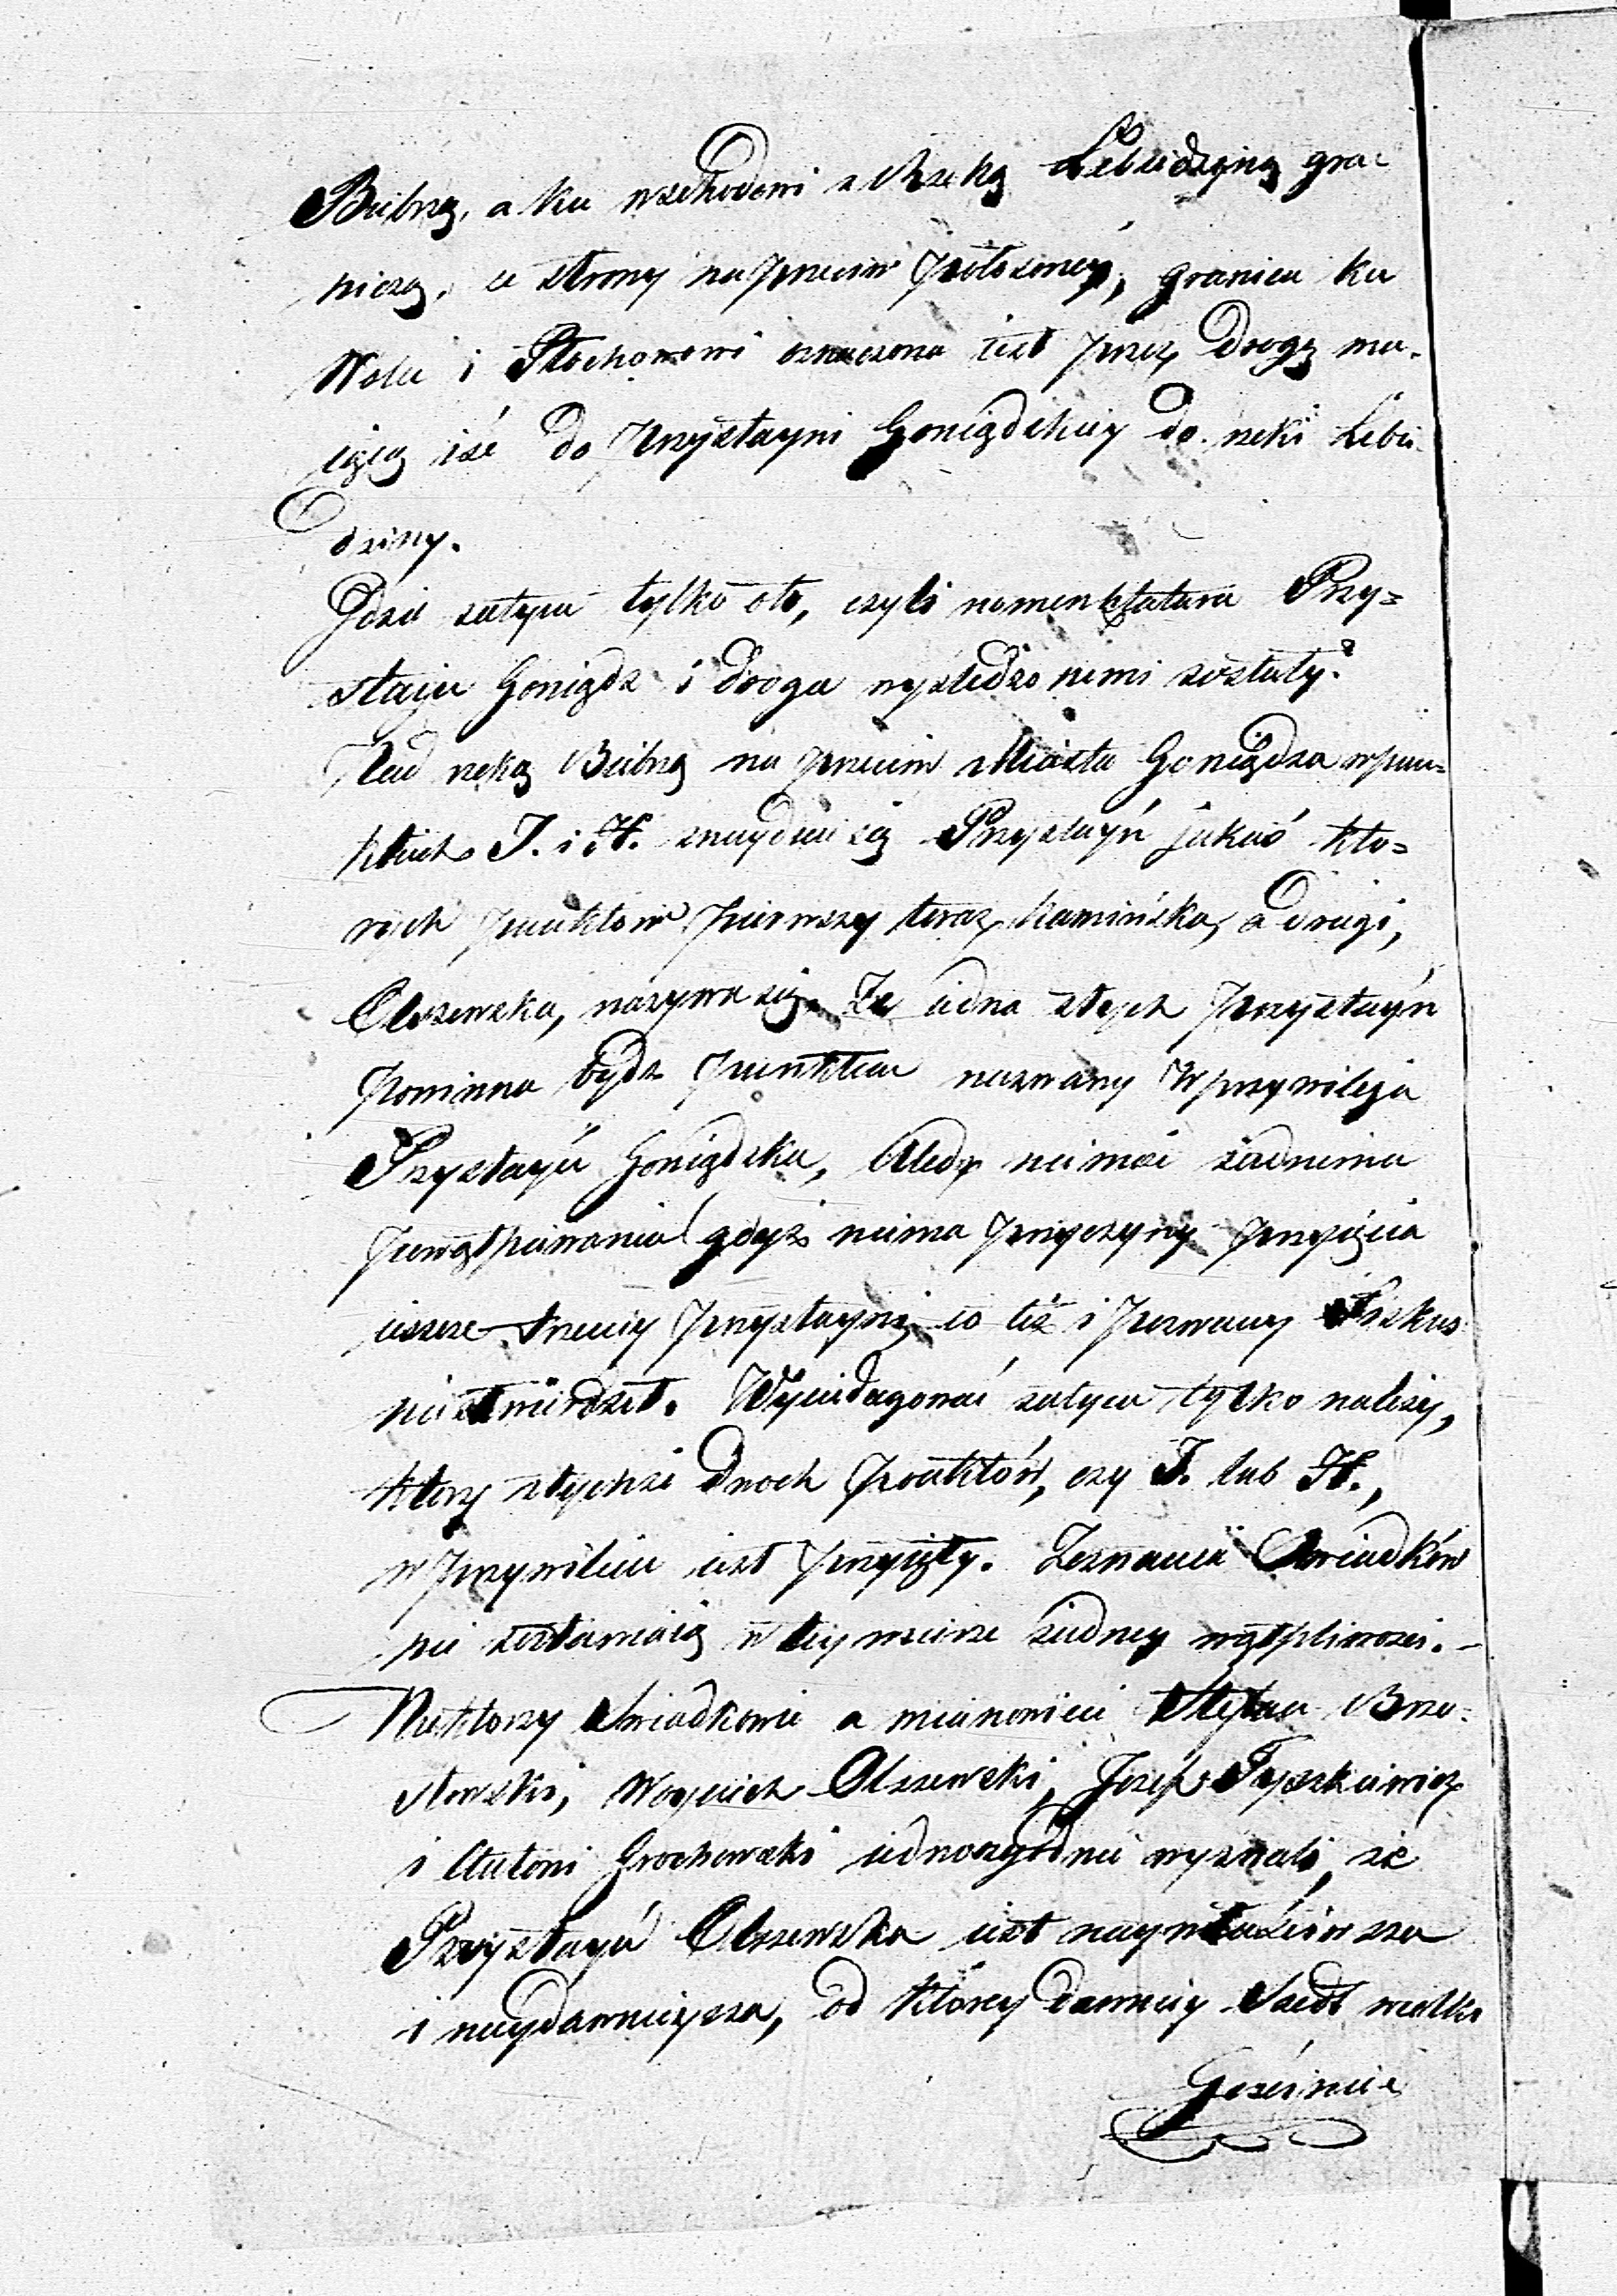 Biebrzą, a ku wschodowi z Rzeką Lebiedzyną gra=
niczą, ze strony na przeciw położoney, granica ku
Wola i Płochowowi oznaczona iest przez Drogę ma-
iącą iść do przystayni Goniądzkiey do rzeki Lebie-
dziny.
Idzie zatym tylko oto, czyli nomenklatura Przy=
staju Goniądz i droga wyśledzonemi zostały?
Nad rzeką Biebrą na przeciw Miasta Goniądza w pun=
ktach J. i H. znayduie się Przystayń jakaś któ=
rych punktów pierwszy teraz Kamińska, a drugi,
Olszewska, nazywa się. Że iedna z tych przystayń
powinna bydź punktem nazwany w przywileju
Przystayń Goniądzka, uledz nie może żadnemu
powątpiewaniu (gdyż niema przyczyny przyięcia
ieszcze trzeciey przystayni, co też i pozwany Fiskus
nie twierdził. Wycedagować zatym tylko należy,
który z tychże dwóch punktów, czy J. lub H.,
w przywileiu iest przyięty. Zeznania Świadków
nie zostawiaią w tey mierze żadney wątpliwości. –
Niektórzy Świadkowie a mianowicie Stefan Brzo=
stowski, Woyciech Olszewski, Jozef Tyszkiewicz
i Antoni Grochowski iednozgodnie wyznali, że
Przystayń Olszewska iest naywłaściwsza
i naydawnieysza, od którey dawniey szedł wielki
Gościniec